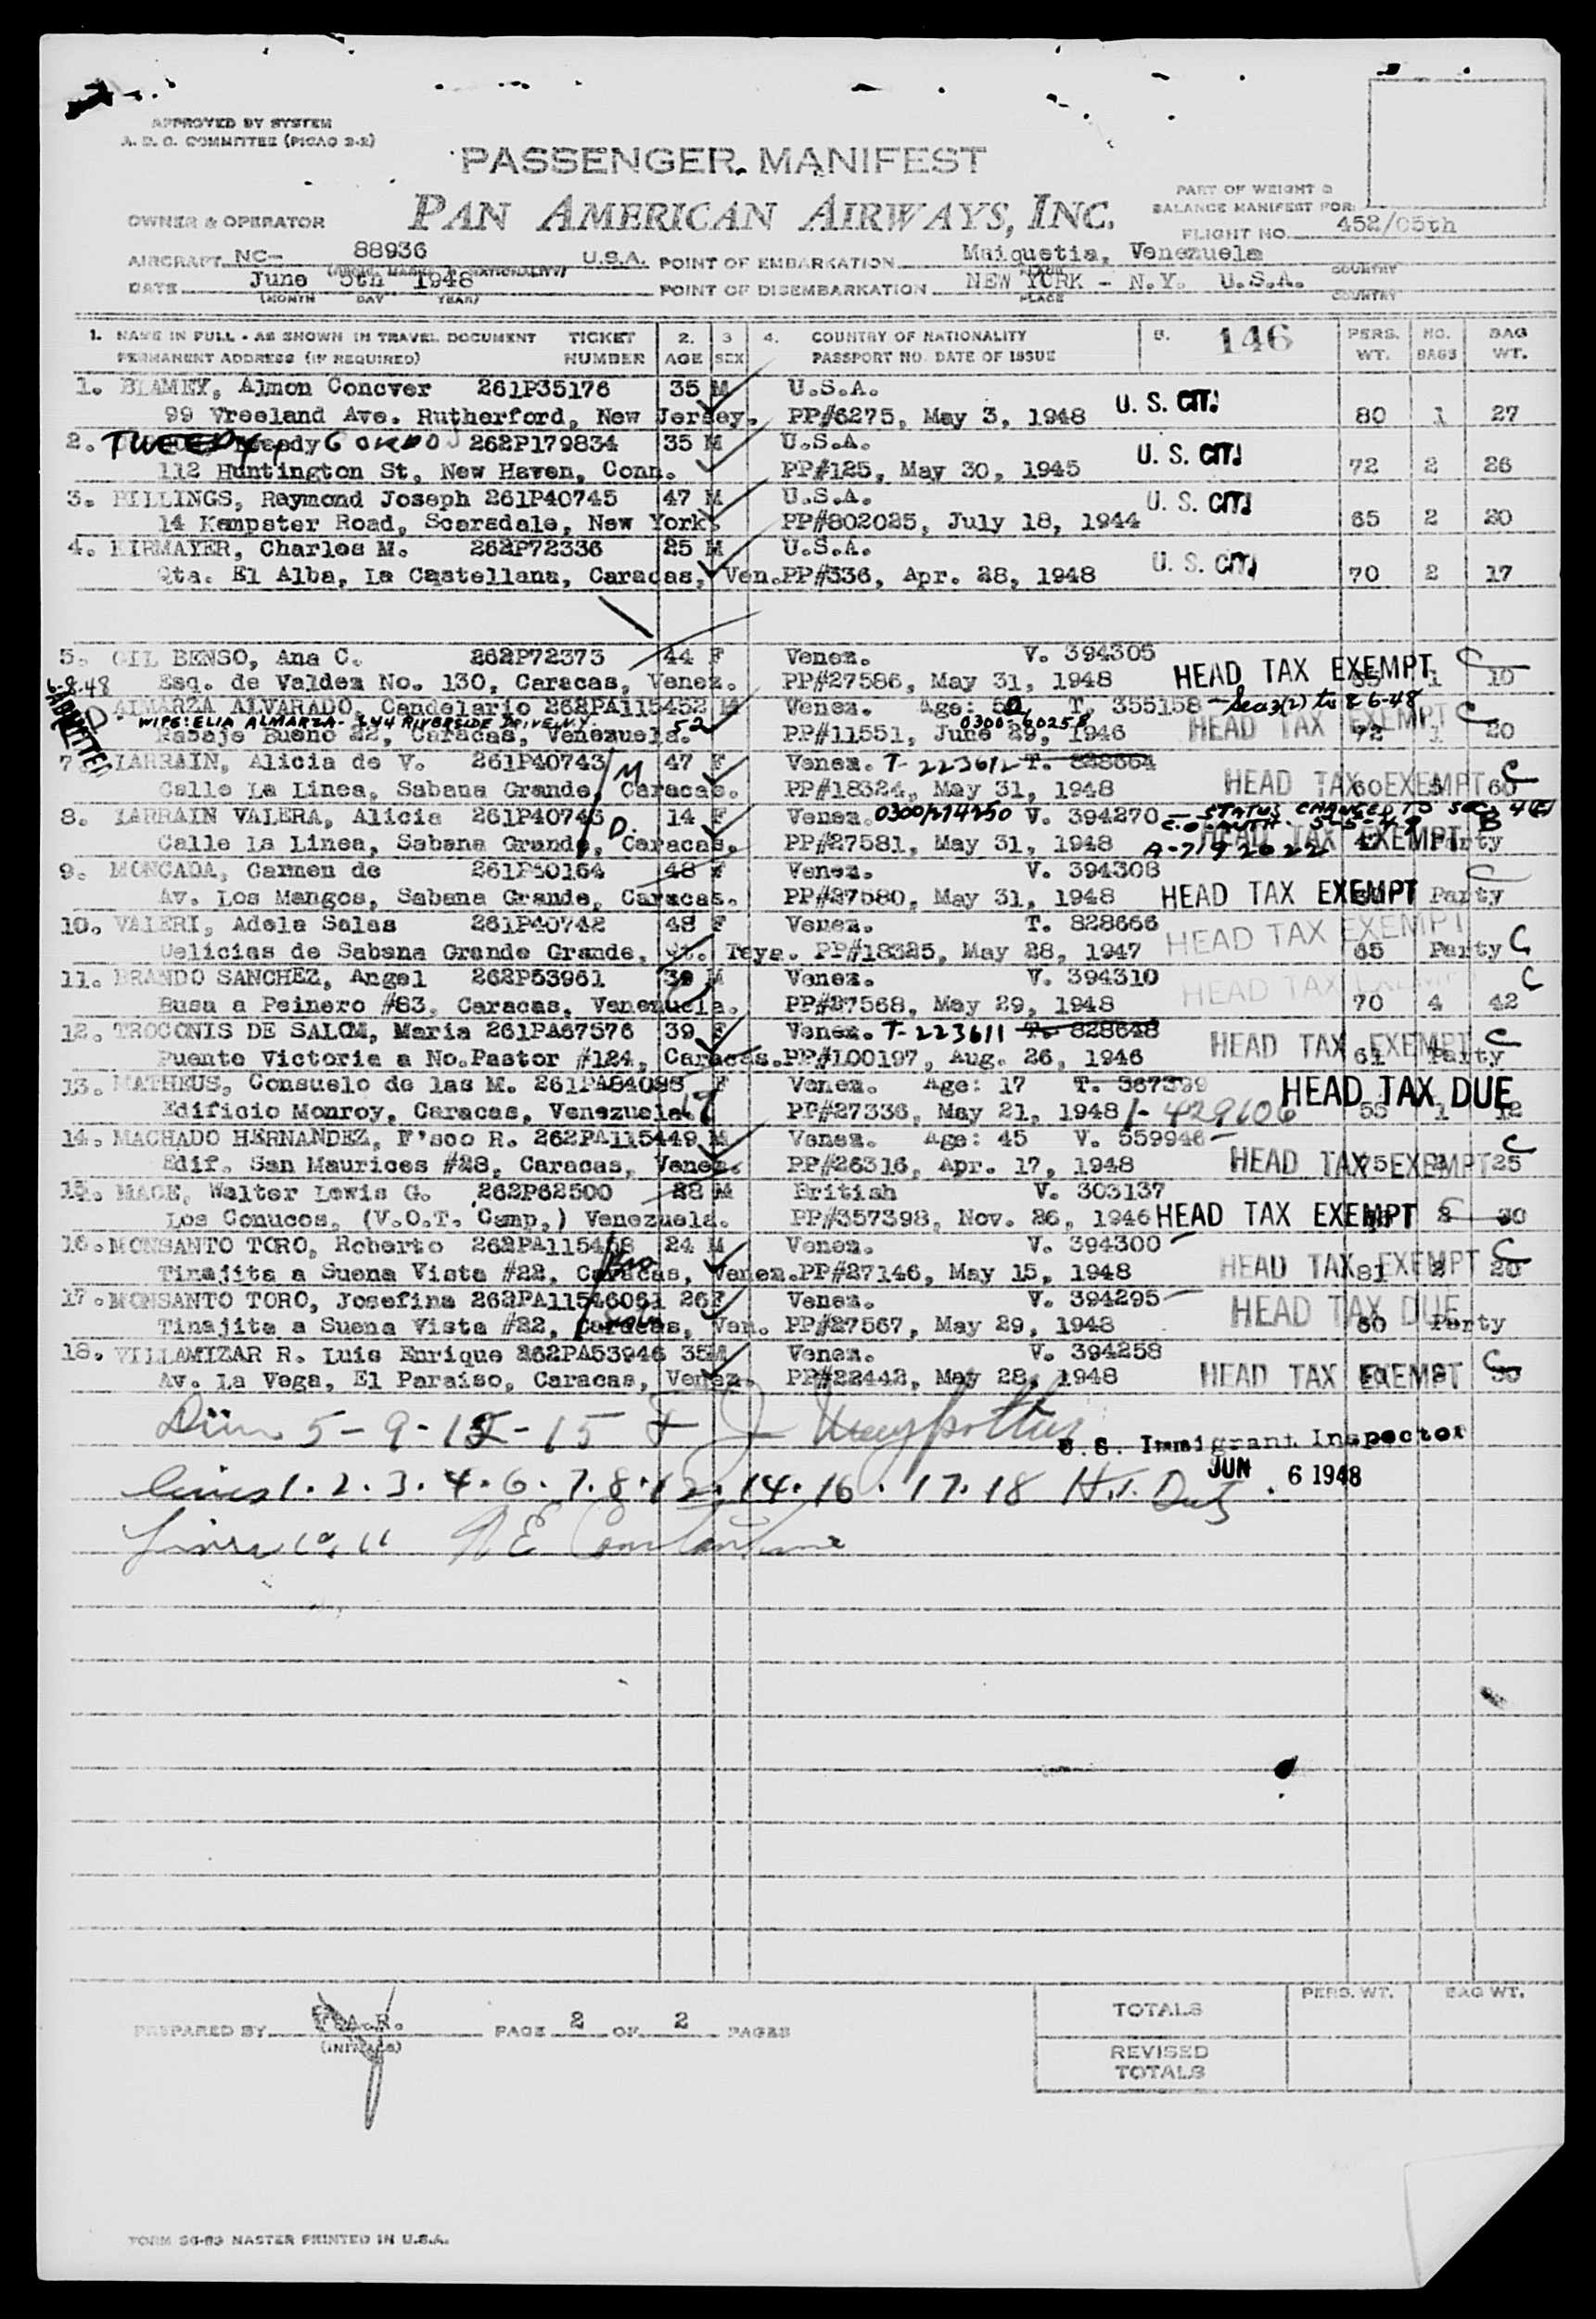 APPROVED BY SYSTEM
A. D. C. COMMITTEE (PICAO 2-2)
PASSENGER MANIFEST
PART OF WEIGHT &
BALANCE MANIFEST FOR
OWNER & OPERATOR PAN AMERICAN AIRWAYS, INC.
FLIGHT NO. 452/05th
AIRCRAFT NC- 88936 U.S.A. POINT OF EMBARKATION Maiquetia, Venezuela
COUNTRY
DATE June 5th 1948 POINT OF DISEMBARKATION NEW YORK - N.Y. U.S.A.
(MONTH DAY YEAR) PLACE COUNTRY
1. NAME IN FULL - AS SHOWN IN TRAVEL DOCUMENT TICKET 2. 3 4. COUNTRY OF NATIONALITY 5. 146 PERS. NO. BAG
PERMANENT ADDRESS (IF REQUIRED) NUMBER AGE SEX PASSPORT NO. DATE OF ISSUE WT. BAGS WT.
1. BLAMEY, Almon Conover 261P35176 35 M U.S.A.
99 Vreeland Ave. Rutherford, New Jersey. PP#6275, May 3, 1948 U. S. CIT. 80 1 27
2. TWEEDY, GORDON 262P179834 35 M U.S.A.
112 Huntington St, New Haven, Conn. PP#125, May 30, 1945 U. S. CIT. 72 2 26
3. BILLINGS, Raymond Joseph 261P40745 47 M U.S.A.
14 Kempster Road, Scarsdale, New York. PP#802025, July 18, 1944 U. S. CIT. 65 2 20
4. HIRMAYER, Charles M. 262P72336 25 M U.S.A.
Qta. El Alba, La Castellana, Caracas, Ven. PP#336, Apr. 28, 1948 U. S. CIT. 70 2 17
5. GIL BENSO, Ana C. 262P72373 44 F Venez. V. 394305
Esq. de Valdez No. 130, Caracas, Venez. PP#27586, May 31, 1948 HEAD TAX EXEMPT 1 10 C
6-8-48 ADMITTED
ALMARZA ALVARADO, Candelario 262PA115452 M Venez. Age: T. 355158 - Sec 3(2) to 8-6-48
WIFE: ELIA ALMARZA - 344 RIVERSIDE DRIVE N.Y. 52 0300-60258
Pasaje Bueno 22, Caracas, Venezuela. PP#11551, June 29, 1946 HEAD TAX EXEMPT 72 1 20 C
7. LARRAIN, Alicia de V. 261P40743 M 47 F Venez. T-223612 T. 828664
Calle La Linea, Sabana Grande, Caracas. PP#18324, May 31, 1948 HEAD TAX EXEMPT 60 5 60 C
8. LARRAIN VALERA, Alicia 261P40746 D. 14 F Venez. 0300/274250 V. 394270 - STATUS CHANGED TO SEC. 4(E)
Calle La Linea, Sabana Grande, Caracas. PP#27581, May 31, 1948 A-7192022 HEAD TAX EXEMPT Party
9. MONCADA, Carmen de 261P40164 48 F Venez. V. 394308
Av. Los Mangos, Sabana Grande, Caracas. PP#27580, May 31, 1948 HEAD TAX EXEMPT Party
10. VALERI, Adela Salas 261P40742 48 F Venez. T. 828666
Delicias de Sabana Grande Grande, Qt. Teya. PP#18325, May 28, 1947 HEAD TAX EXEMPT 65 Party C
11. BRANDO SANCHEZ, Angel 262P53961 39 M Venez. V. 394310
Busa a Peinero #83, Caracas, Venezuela. PP#27568, May 29, 1948 HEAD TAX EXEMPT 70 4 42 C
12. TROCONIS DE SALOM, Maria 261PA67576 39 F Venez. T-223611 T. 828648
Puente Victoria a No.Pastor #124, Caracas. PP#100197, Aug. 26, 1946 HEAD TAX EXEMPT 61 Party C
13. MATHEUS, Consuelo de las M. 261PA84085 F Venez. Age: 17 T. 367399
Edificio Monroy, Caracas, Venezuela. 17 PP#27336, May 21, 1948 1-429106 HEAD TAX DUE 55 1 12
14. MACHADO HERNANDEZ, F'sco R. 262PA115449 M Venez. Age: 45 V. 559946
Edif. San Maurices #28, Caracas, Venez. PP#26316, Apr. 17, 1948 HEAD TAX EXEMPT 75 2 25 C
15. MACE, Walter Lewis G. 262P62500 28 M British V. 303137
Los Conucos, (V.O.T. Camp,) Venezuela. PP#357398, Nov. 26, 1946 HEAD TAX EXEMPT 2 30
16. MONSANTO TORO, Roberto 262PA115458 24 M Venez. V. 394300
Tinajita a Suena Vista #22, Caracas, Venez. PP#27146, May 15, 1948 HEAD TAX EXEMPT 81 2 20 C
17. MONSANTO TORO, Josefina 262PA11546061 26 F Venez. V. 394295
Tinajita a Suena Vista #22, Caracas, Ven. PP#27567, May 29, 1948 HEAD TAX DUE 60 Party
18. VILLAMIZAR R. Luis Enrique 262PA53946 35 M Venez. V. 394258
Av. La Vega, El Paraiso, Caracas, Venez. PP#22442, May 28, 1948 HEAD TAX EXEMPT 30 C
5-9-12-15
U. S. Immigrant Inspector
JUN 6 1948
Lines 1.2.3.4.6.7.8.12.14.16.17.18
Lines 10, 11
PREPARED BY A.R. PAGE 2 OF 2 PAGES
(INITIALS)
TOTALS PERS. WT. BAG WT.
REVISED
TOTALS
FORM SG-83 MASTER PRINTED IN U.S.A.